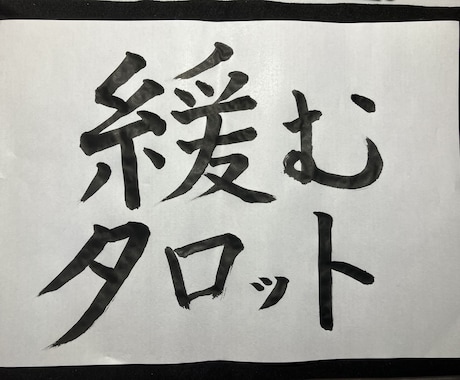 緩む
タロット